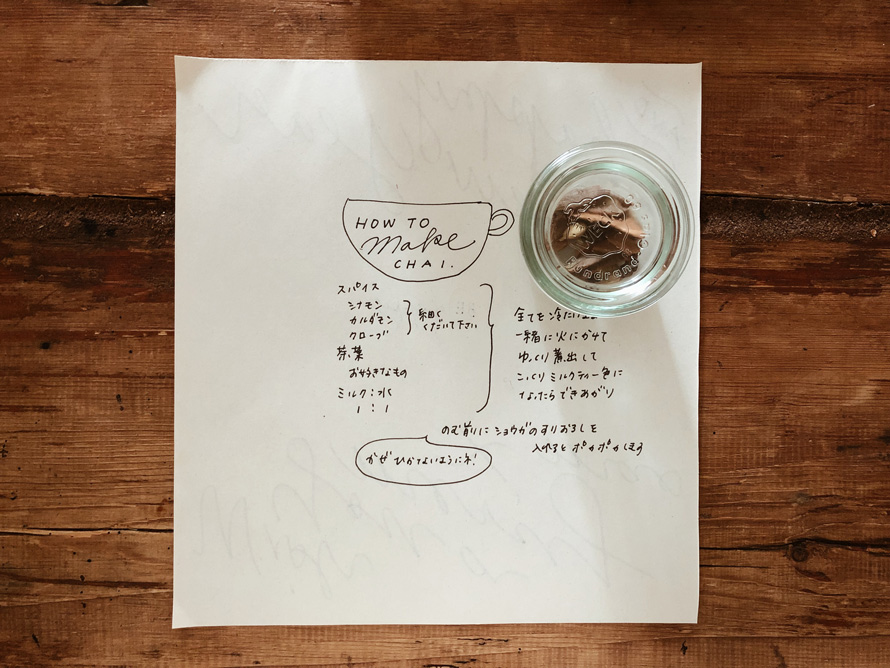 HOW TO
Make
CHAI.
スパイス
シナモン
カルダモン
クローブ
細かく
くだいて下さい
茶葉
お好きなもの
ミルク:水
1:1
全てを冷たいまま
一緒に火にかけて
ゆっくり煮出して
こっくりミルクティー色に
なったらできあがり
のむ前にショウガのすりおろしを
入れるとポカポカします
かぜひかないようにネ!
WECK
Rundrand-G